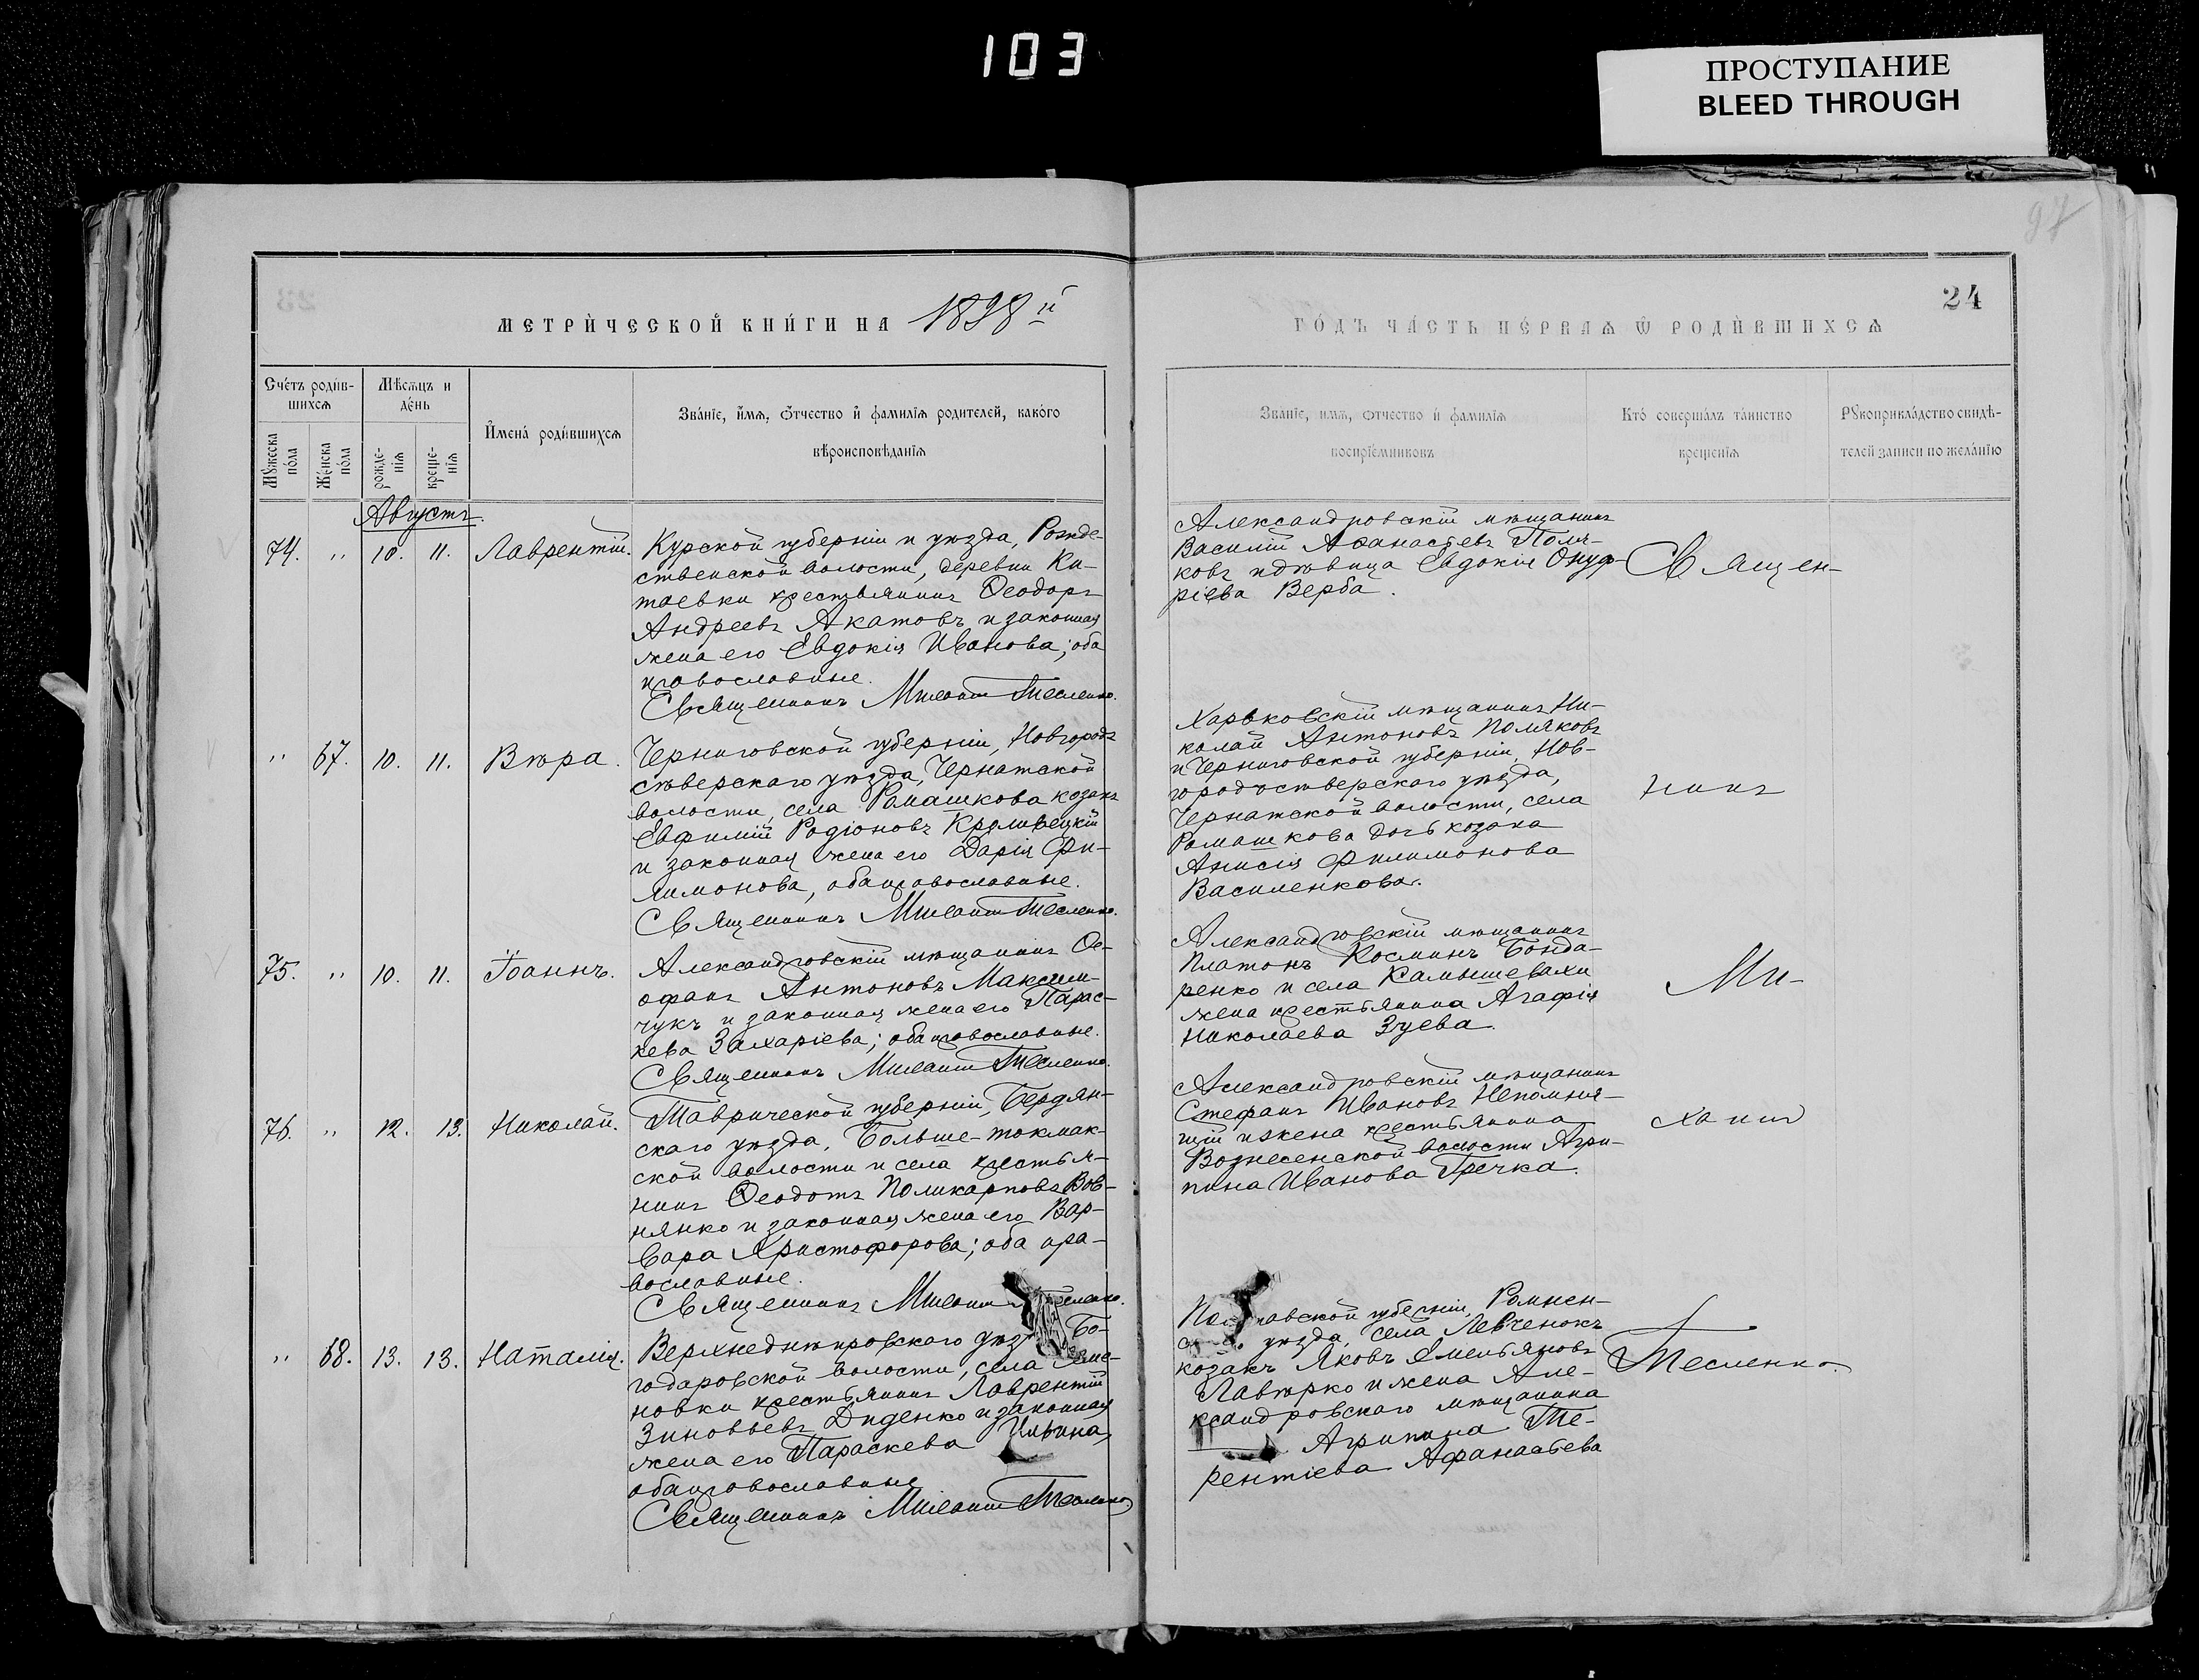 103
ПРОСТУПАНИЕ
BLEED THROUGH
97
24
МЕТРИ́ЧЕСКОЙ КНИ́ГИ НА 1898й
ГО́ДЪ ЧА́СТЬ ПЕ́РВАѦ Ѡ РОДИ́ВШИХСѦ
Сче́тъ роди́в-
шихсѧ
Мѣ́сѧцъ и
де́нь
Мꙋжеска
по́ла
Же́нска
по́ла
рожде-
нїѧ
креще-
нїѧ
И҆мена̀ роди́вшихсѧ
Зва́нїе, и҆́мѧ, ѻ҆́тчество и҆ фамилїѧ родителей, како́го
вѣроисповѣ́данїѧ
Зва́нїе, имѧ, ѻтчество и́ фамилїѧ
воспрїе́мниковъ
Кто́ соверша́лъ та́инство
креще́нїѧ
Рꙋкоприкла́дство свидѣ́-
телей записи по жела́нїю
Августъ.
74. " 10. 11. Лаврентій.
Курской губерніи и уѣзда, Рожде-
ственской волости, деревни Ки-
таевки крестьянинъ Ѳеодоръ
Андреевъ Акатовъ и законная
жена его Евдокія Иванова; оба
православные.
Священникъ Михаилъ Тесленко.
Александровскій мѣщанинъ
Василій Аѳанасьевъ Поля-
ковъ и дѣвица Евдокія Онуф-
ріева Верба.
Священ-
" 67. 10. 11. Вѣра.
Черниговской губерніи, Новгородъ
сѣверскаго уѣзда, Чернатской
волости, села Ромашкова козакъ
Евфимій Родіоновъ Кролевецкій
и законная жена его Дарія Фи-
лимонова, оба православные.
Священникъ Михаилъ Тесленко.
Харьковскій мѣщанинъ Ни-
колай Антоновъ Поляковъ
и Черниговской губерніи, Нов-
городъсѣверскаго уѣзда,
Чернатской волости, села
Ромашкова дочь козака
Анисія Филимонова
Василенкова.
никъ
75. " 10. 11. Іоаннъ.
Александровскій мѣщанинъ Ѳе-
офанъ Антоновъ Максим-
чукъ и законная жена его Парас-
кева Захаріева; оба православные.
Священникъ Михаилъ Тесленко.
Александровскій мѣщанинъ
Платонъ Косминъ Бонда-
ренко и села Камышевахи
жена крестьянина Агафія
Николаева Зуева.
Ми-
76. " 12. 13. Николай.
Таврической губерніи, Бердян-
скаго уѣзда, Больше-токмак-
ской волости и села крестья-
нинъ Ѳеодотъ Поликарповъ Вов-
нянко и законная жена его Вар-
вара Христофорова; оба пра-
вославные.
Священникъ Михаилъ Тесленко.
Александровскій мѣщанинъ
Стефанъ Ивановъ Непомня-
щій и жена крестьянина
Вознесенской волости Агри-
пина Иванова Гречка.
хаилъ
" 68. 13. 13. Наталія.
Верхнеднѣпровскаго уѣз Бо-
годаровской волости, села Семе-
новки крестьянинъ Лаврентій
Зиновьевъ Диденко и законная
жена его Параскева Ильина,
оба православные
Священникъ Михаилъ Тесленко.
По авской губерніи, Ромнен-
уѣзда, села Левченокъ
козакъ Яковъ Емельяновъ
Лавѣрко и жена Але-
ксандровскаго мѣщанина
Агрипина Те-
рентіева Афанасьева
Тесленко.